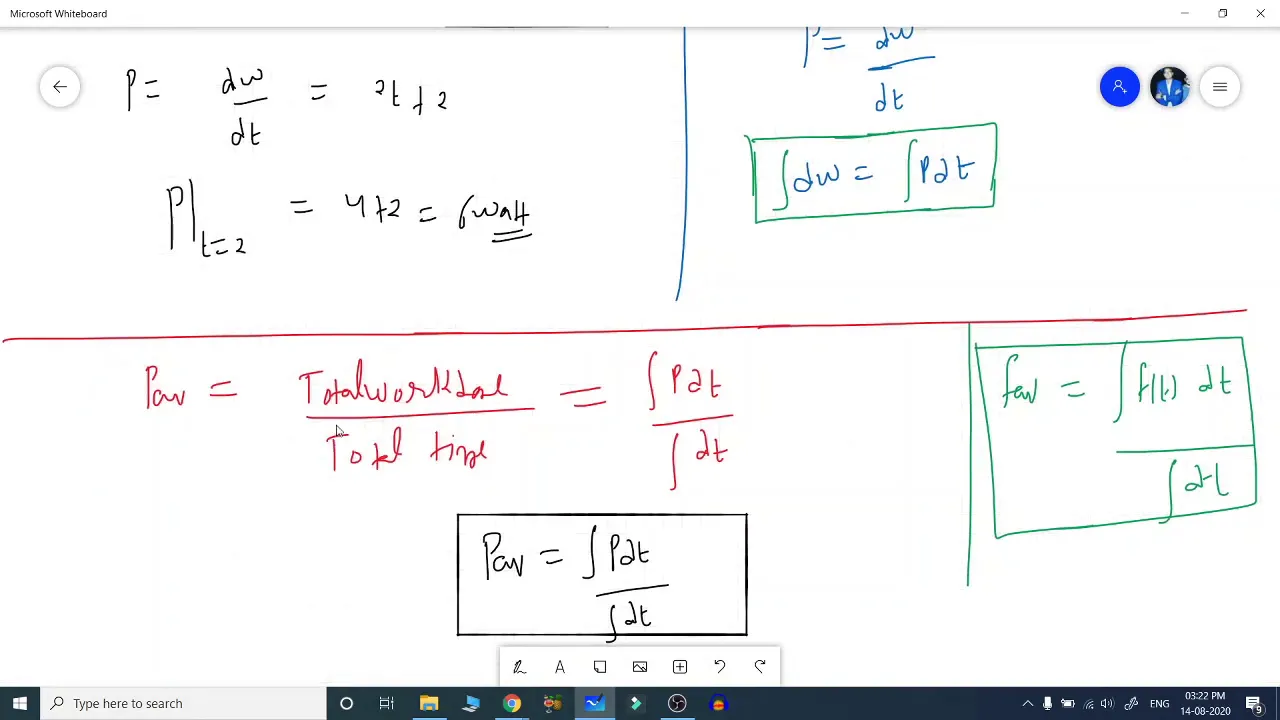 Microsoft Whiteboard
P = dw/dt = 2t+2
P|t=2 = 4+2 = 6 watt
P = dw/dt
∫dw = ∫Pdt
Pav = Total work done / Total time = ∫Pdt / ∫dt
fav = ∫f(t) dt / ∫dt
Pav = ∫Pdt / ∫dt
A
Type here to search
ENG
03:22 PM
14-08-2020
9